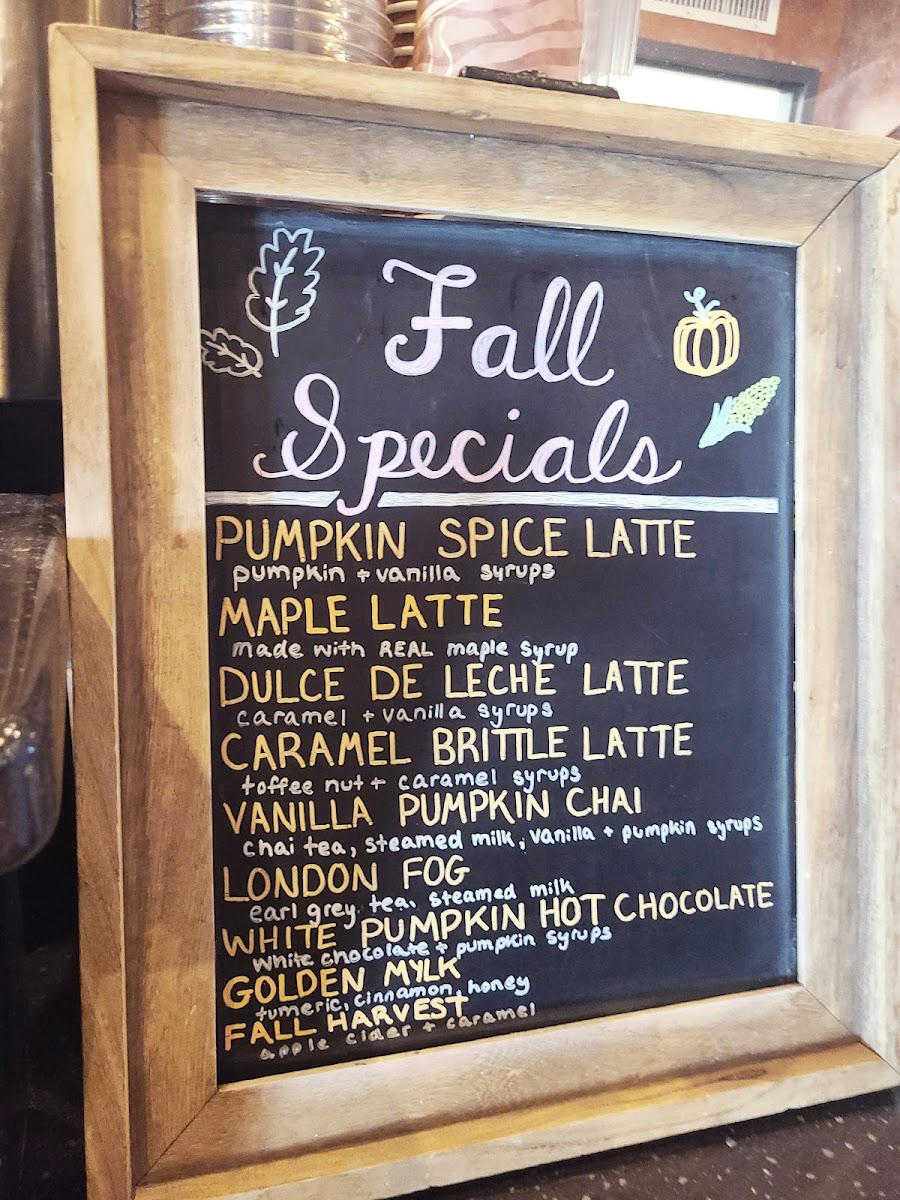 Fall
Specials
PUMPKIN SPICE LATTE
pumpkin + vanilla syrups
MAPLE LATTE
made with REAL maple syrup
DULCE DE LECHE LATTE
caramel + vanilla syrups
CARAMEL BRITTLE LATTE
toffee nut + caramel syrups
VANILLA PUMPKIN CHAI
chai tea, steamed milk, vanilla + pumpkin syrups
LONDON FOG
earl grey tea, steamed milk
WHITE PUMPKIN HOT CHOCOLATE
white chocolate + pumpkin syrups
GOLDEN MYLK
tumeric, cinnamon, honey
FALL HARVEST
apple cider + caramel